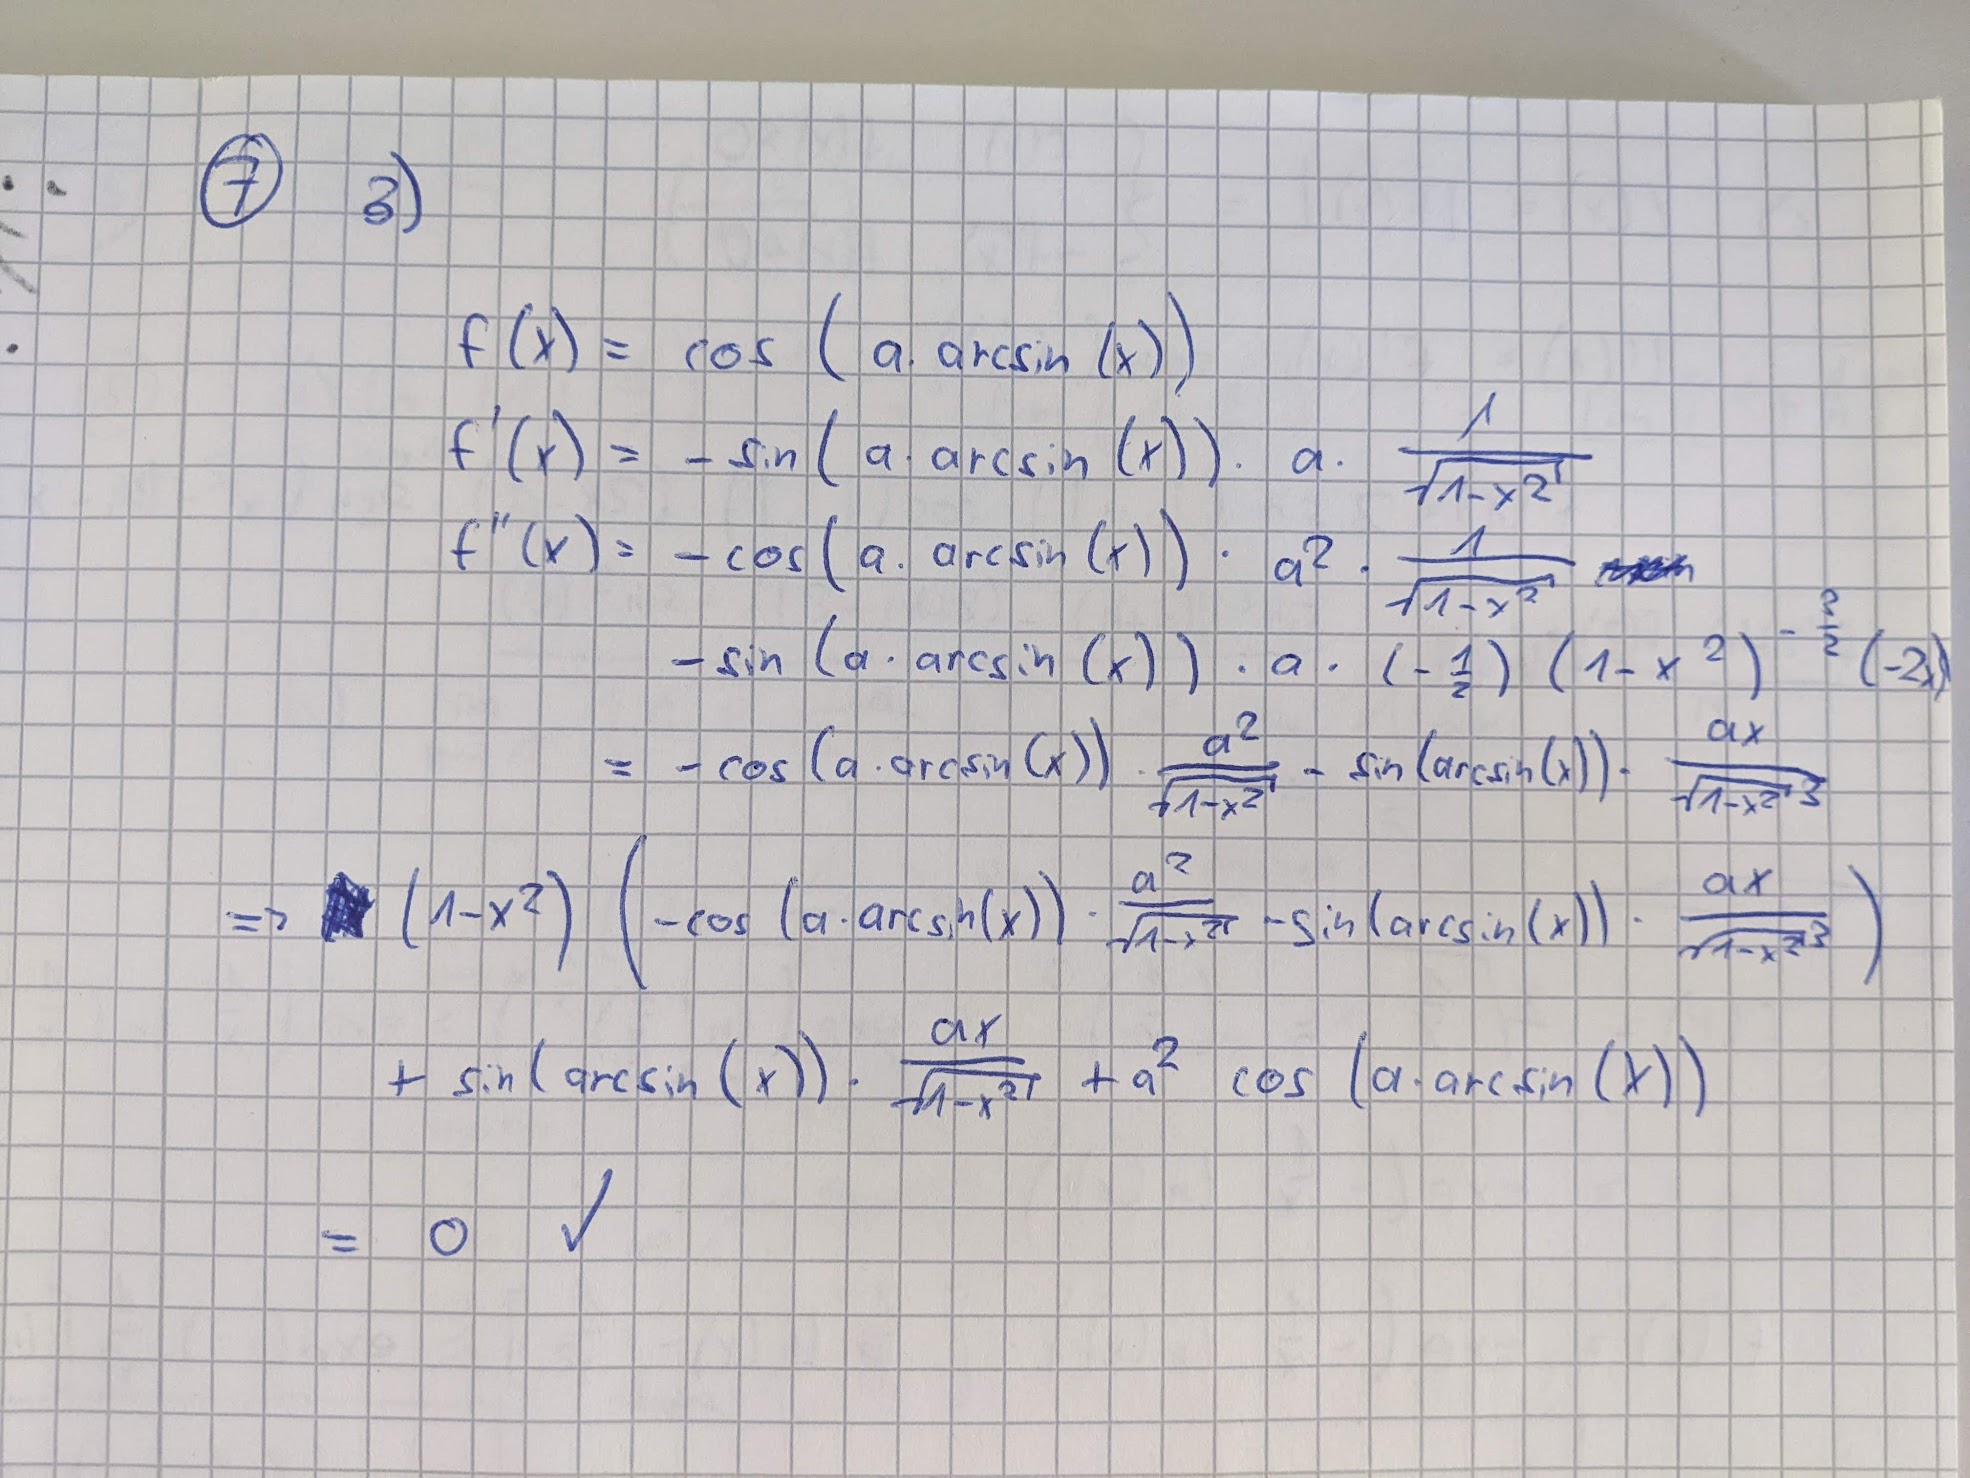 7 3)
f(x) = cos (a · arcsin (x))
f'(x) = - sin (a · arcsin (x)) · a · 1/√(1-x²)
f''(x) = - cos (a · arcsin (x)) · a² · 1/√(1-x²)
- sin (a · arcsin (x)) · a · (-1/2) (1-x²)^(-3/2) (-2x)
= - cos (a · arcsin (x)) · a²/√(1-x²) - sin (arcsin (x)) · ax/√(1-x²)³
=> (1-x²) (- cos (a · arcsin (x)) · a²/√(1-x²) - sin (arcsin (x)) · ax/√(1-x²)³)
+ sin (arcsin (x)) · ax/√(1-x²) + a² cos (a · arcsin (x))
= 0 ✓